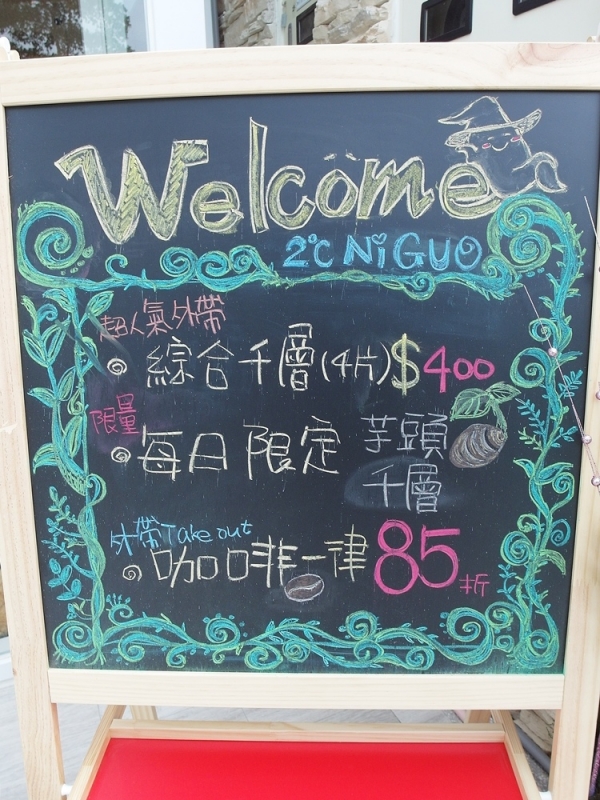 Welcome
2℃ NiGUO
超人氣外帶
綜合千層(4片)$400
限量
每日限定 芋頭
千層
外帶Take out
咖啡一律85折